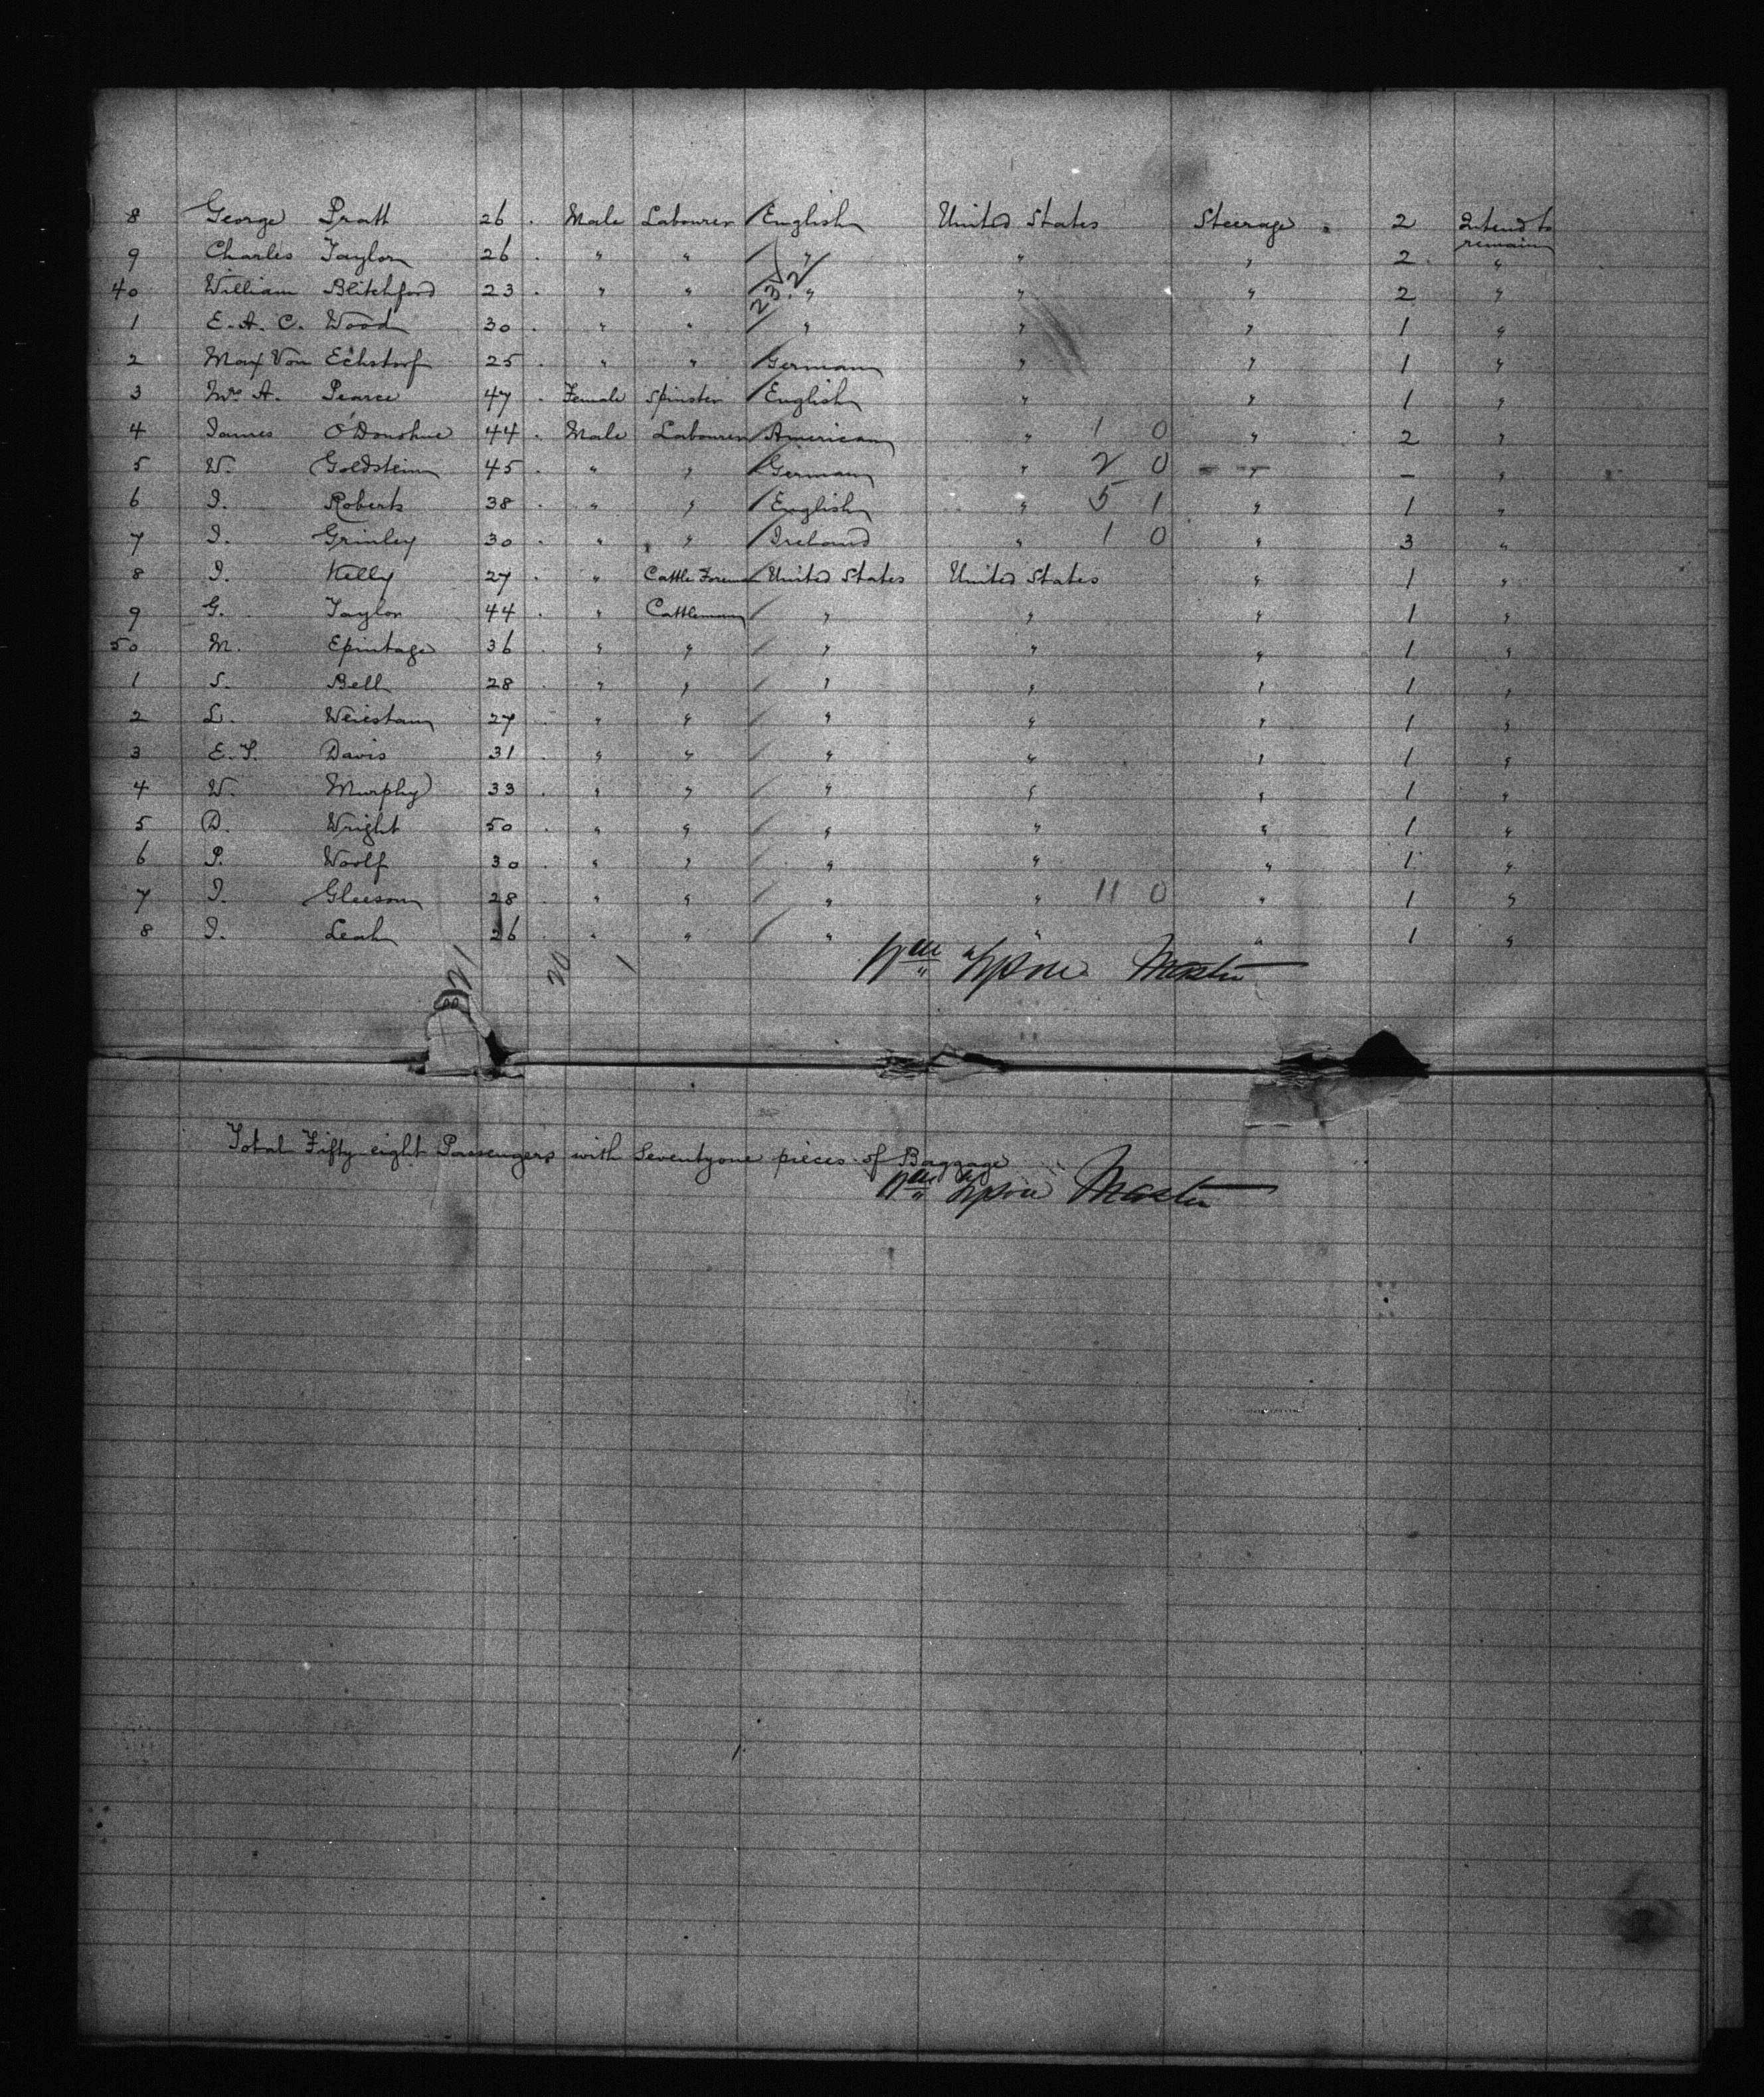 8 George Pratt 26 . Male Labourer English United States Steerage 2 Intend to remain
9 Charles Taylor 26 . " " " " " 2 "
40 William Blitchford 23 . " " " " " 2 "
1 E. A. C. Wood 30 . " " " " " 1 "
2 Max Von Eckstorf 25 . " " German " " 1 "
3 Mrs A. Pearce 47 . Female Spinster English " " 1 "
4 James O'Donohue 44 . Male Labourer American " 1 0 " 2 "
5 W. Goldstein 45 . " " German " 2 0 " - "
6 J. Roberts 38 . " " English " 5 1 " 1 "
7 J. Grinley 30 . " " Ireland " 1 0 " 3 "
8 J. Kelly 27 . " Cattle Foreman United States United States " 1 "
9 G. Taylor 44 . " Cattleman " " " 1 "
50 M. Epintage 36 . " " " " " 1 "
1 S. Bell 28 . " " " " " 1 "
2 L. 27 . " " " " " 1 "
3 E. T. Davis 31 . " " " " " 1 "
4 W. Murphy 33 . " " " " " 1 "
5 D. Wright 50 . " " " " " 1 "
6 P. Woolf 30 . " " " " " 1 "
7 J. Gleeson 28 . " " " " 11 0 " 1 "
8 J. Leah 26 . " " " " " 1 "
21 20 1 Wm Master
Total Fifty eight Passengers with Seventyone pieces of Baggage
Wm Master